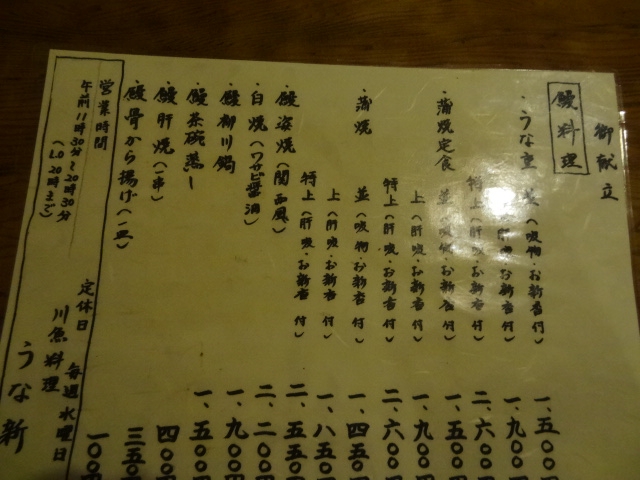 御献立
鰻料理
・うな重 並（吸物・お新香付） 一、五〇〇
（肝吸・お新香付） 一、九〇〇
特上（肝吸・お新香付） 二、六〇〇
・蒲焼定食 並（吸物・お新香付） 一、五〇〇
上（肝吸・お新香付） 一、九〇〇
特上（肝吸・お新香付） 二、六〇〇
・蒲焼 並（吸物・お新香付） 一、四五〇
上（肝吸・お新香付） 一、八五〇
特上（肝吸・お新香付） 二、五五〇
・鰻姿焼（関西風） 二、二〇〇
・白焼（ワサビ醤油） 一、九〇〇
・鰻柳川鍋 一、五〇〇
・鰻茶碗蒸し 四〇〇
・鰻肝焼（一串） 三五〇
・鰻骨から揚げ（一皿） 一〇〇
営業時間 定休日 毎週水曜日
午前11時30分～20時30分
（LO 20時まで）
川魚料理
うな新